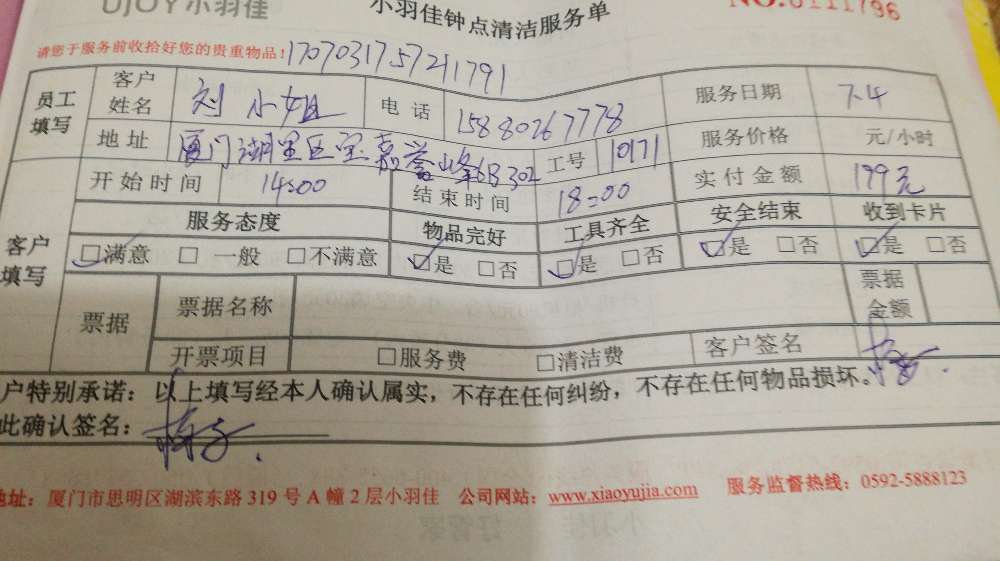 UJOY小羽佳 小羽佳钟点清洁服务单 NO.0111796
请您于服务前收拾好您的贵重物品! 1707031757211791
员工填写 客户姓名 刘小姐 电话 15880267778 服务日期 7.4
地址 厦门湖里区宝嘉誉峰6B302 工号 10171 服务价格 元/小时
开始时间 14:00 结束时间 18:00 实付金额 199元
客户填写 服务态度 物品完好 工具齐全 安全结束 收到卡片
☑满意 □一般 □不满意 ☑是 □否 ☑是 □否 ☑是 □否 ☑是 □否
票据 票据名称 票据金额
开票项目 □服务费 □清洁费 客户签名
户特别承诺:以上填写经本人确认属实,不存在任何纠纷,不存在任何物品损坏。
此确认签名:
地址:厦门市思明区湖滨东路 319 号 A 幢 2 层小羽佳 公司网站:www.xiaoyujia.com 服务监督热线:0592-5888123